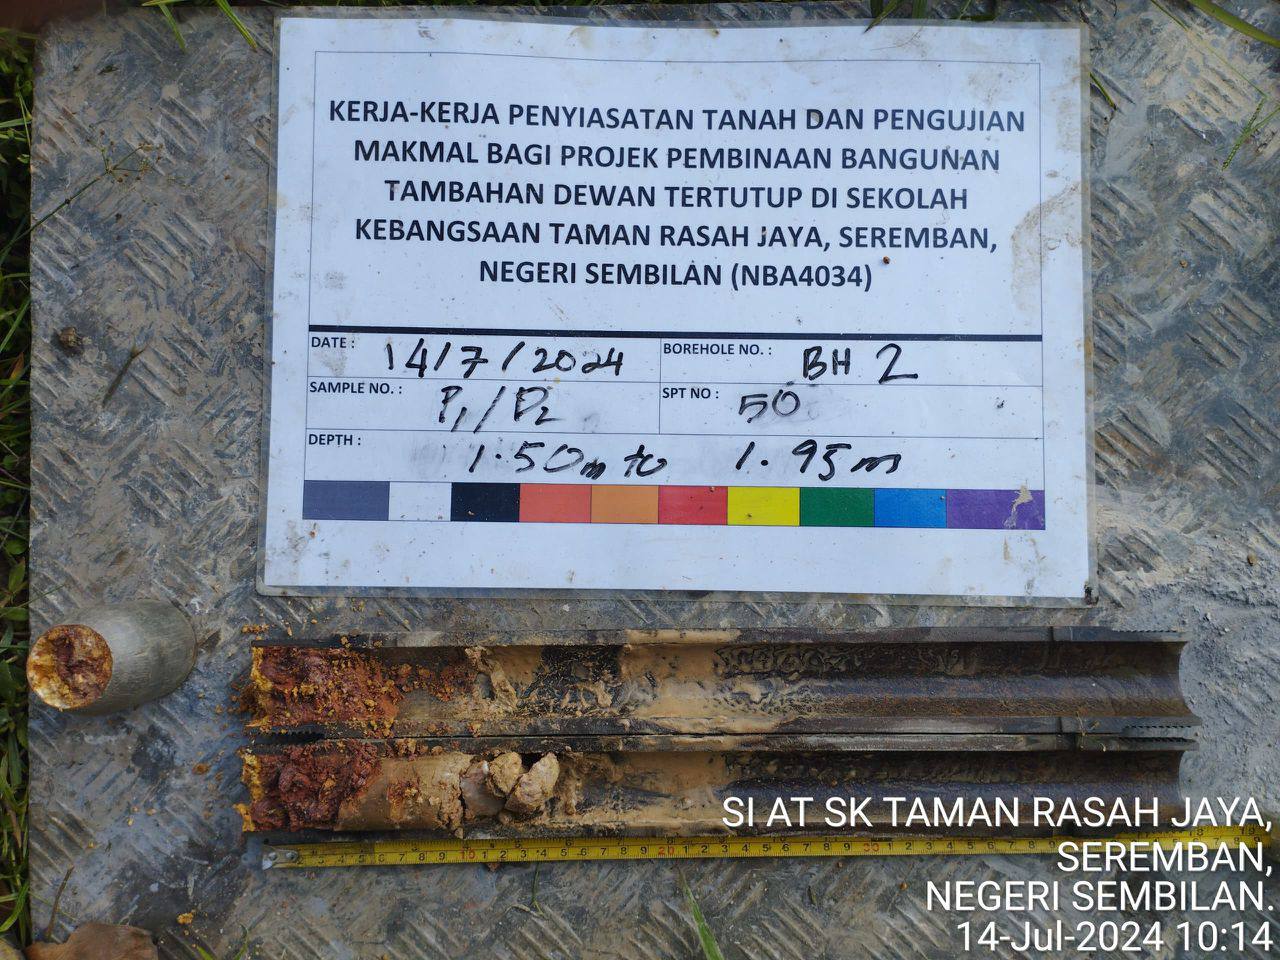 KERJA-KERJA PENYIASATAN TANAH DAN PENGUJIAN
MAKMAL BAGI PROJEK PEMBINAAN BANGUNAN
TAMBAHAN DEWAN TERTUTUP DI SEKOLAH
KEBANGSAAN TAMAN RASAH JAYA, SEREMBAN,
NEGERI SEMBILAN (NBA4034)
DATE : 14/7/2024 BOREHOLE NO. : BH 2
SAMPLE NO. : P1/D2 SPT NO : 50
DEPTH : 1.50m to 1.95m
SI AT SK TAMAN RASAH JAYA,
SEREMBAN,
NEGERI SEMBILAN.
14-Jul-2024 10:14